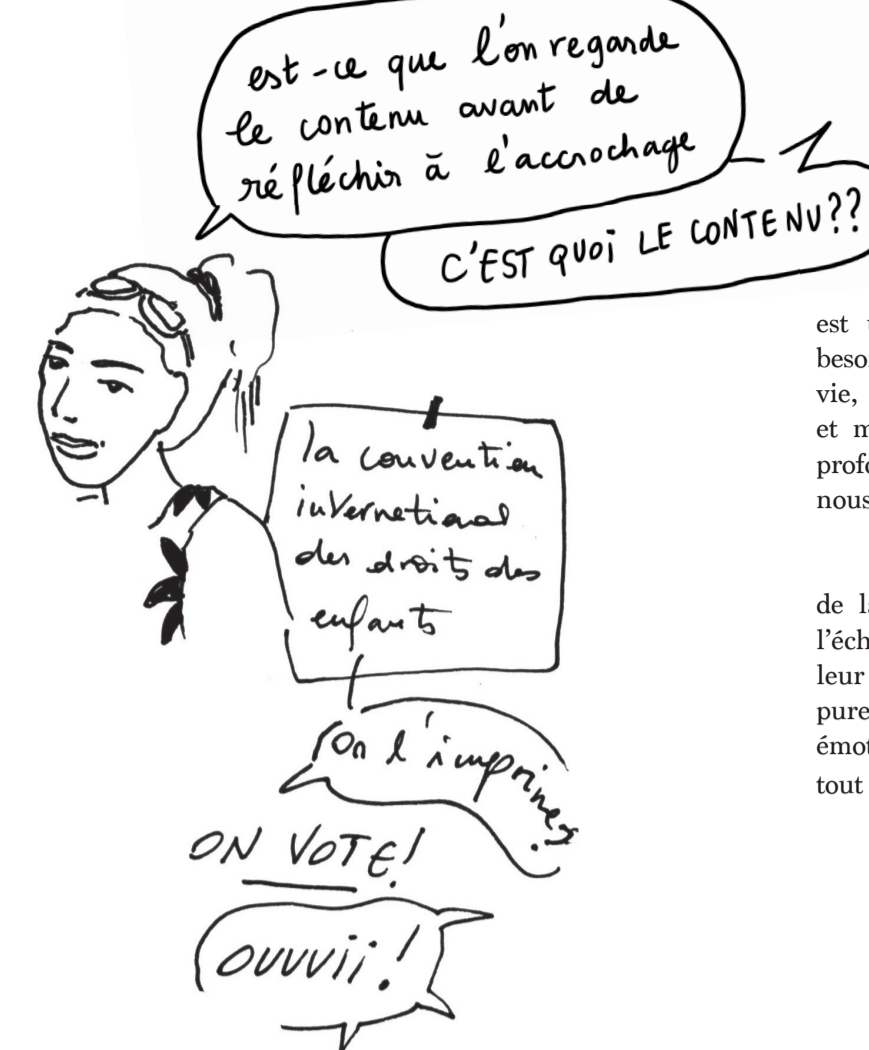 est-ce que l'on regarde
le contenu avant de
réfléchir à l'accrochage
C'EST QUOI LE CONTENU??
la convention
international
des droits des
enfants
On l'imprime?
ON VOTE!
OUUUii!
est
beso
vie,
et m
profo
nous
de la
l'éch
leur
pure
émot
tout